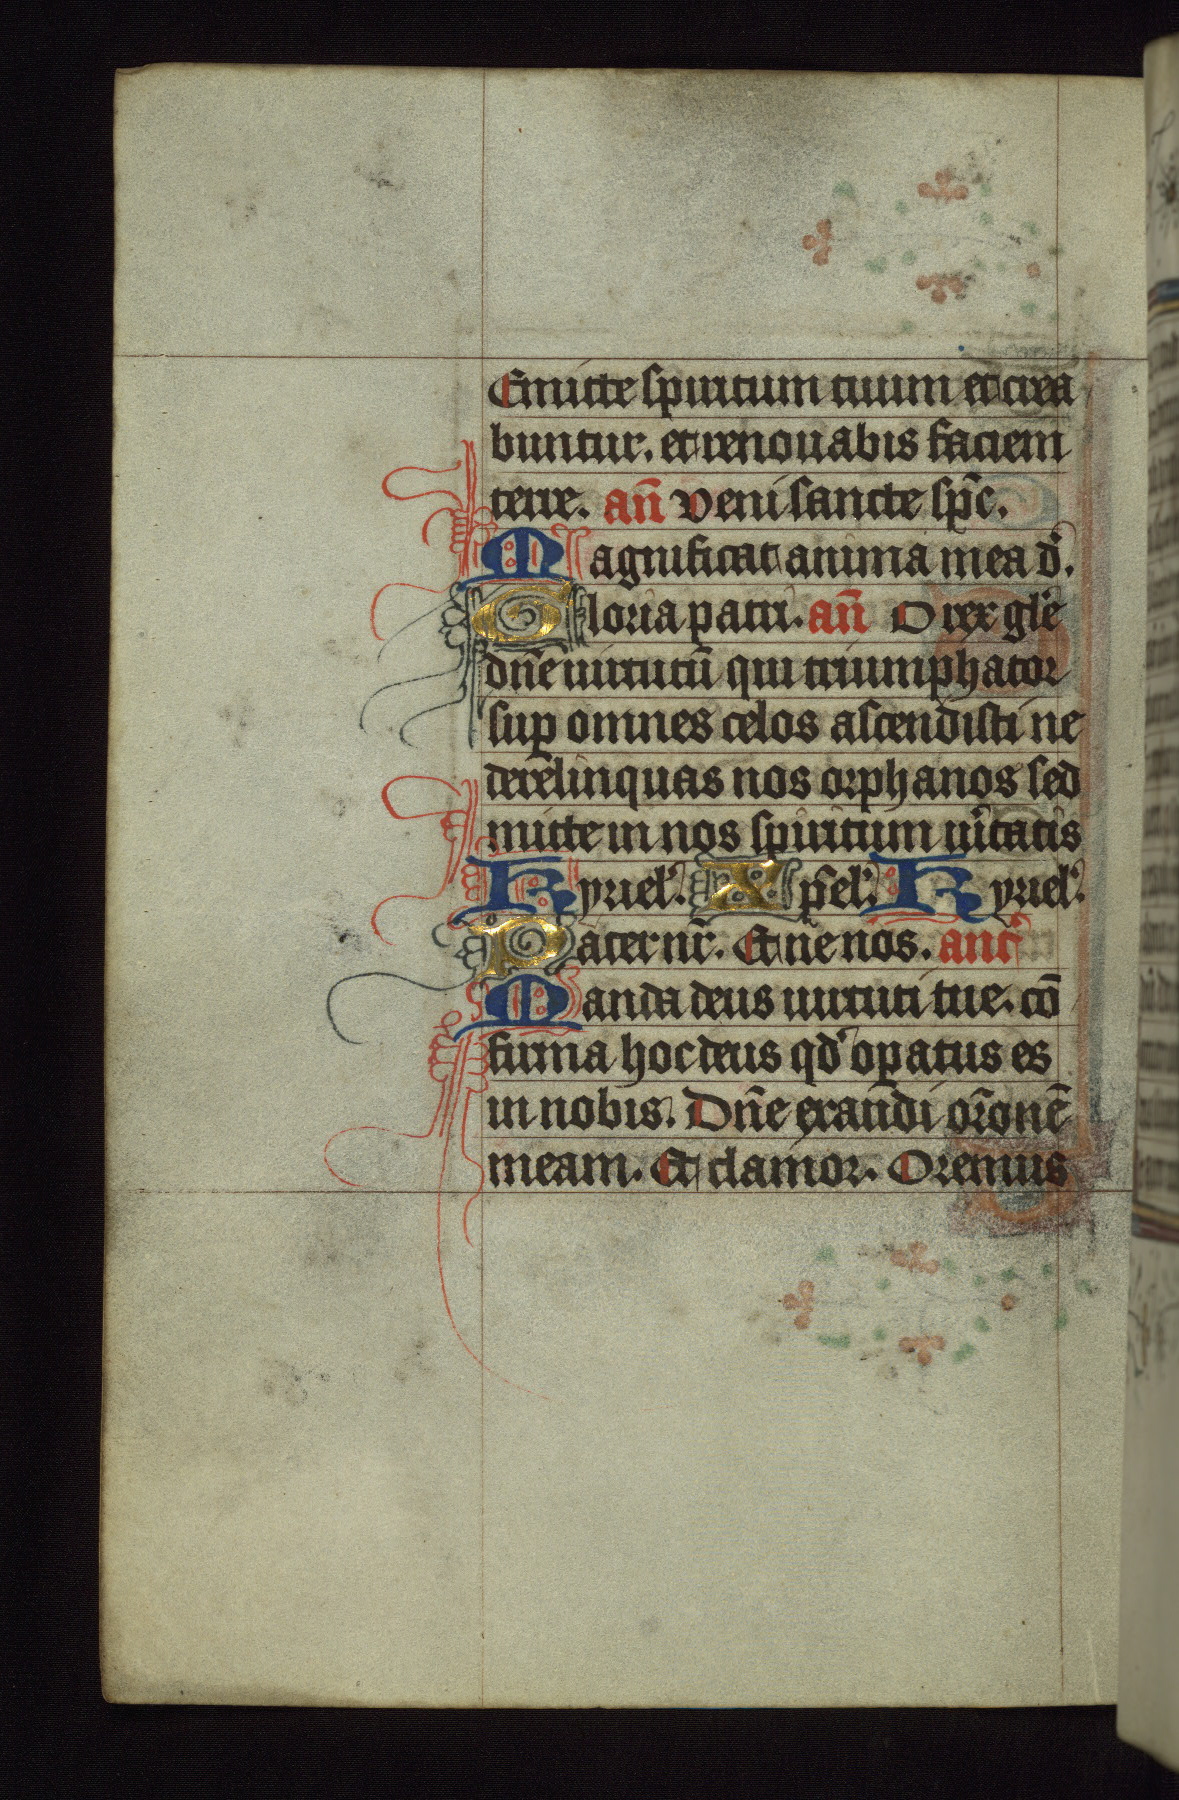 Emitte spiritum tuum et crea
buntur. et renouabis faciem
terre. an̄ Veni sancte sp̄c.
Magnificat anima mea d̓.
Gloria patri. an̄ O rex gl̓e
dn̄e uirtutū qui triumphator
sup omnes celos ascendisti ne
derelinquas nos orphanos sed
mitte in nos spiritum ui̓tatis
Kyriel̓. Xp̄el̓. Kyriel̓.
Pater nr̄. Et ne nos. anf̓
Manda deus uirtuti tue. cō
firma hoc deus qd̓ opatus es
in nobis. Dn̄e exaūdi or̄onē
meam. Et clamor. Oremus